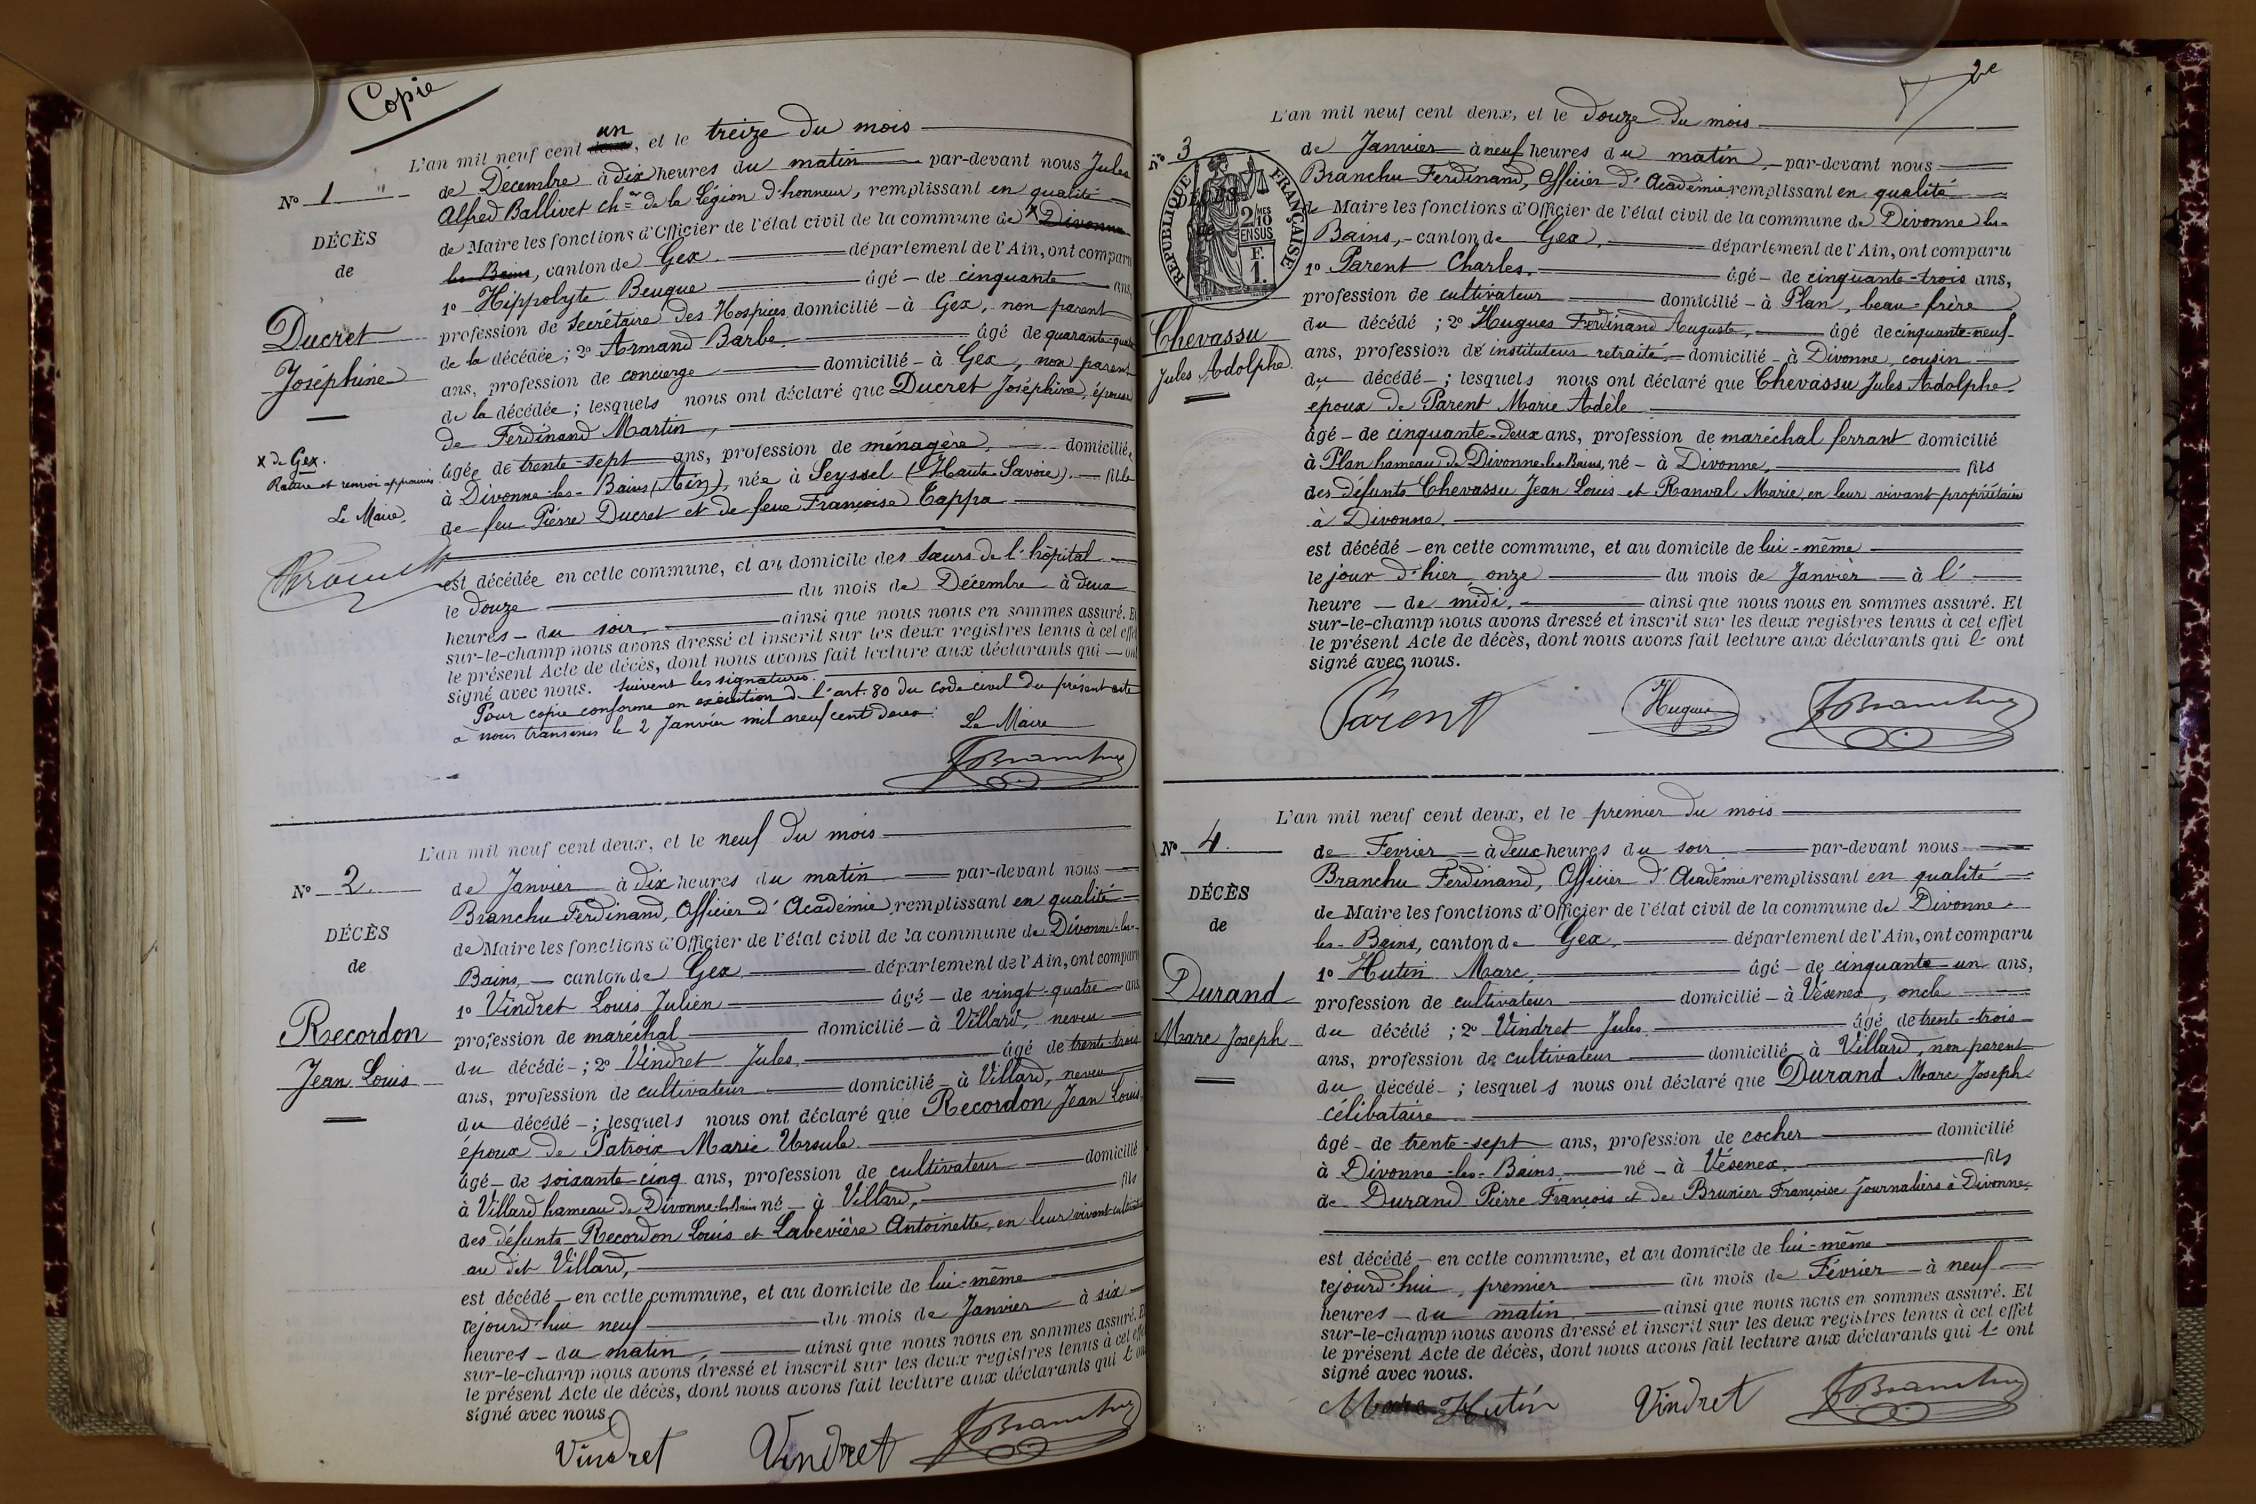 Copie
L'an mil neuf cent deux un, et le treize du mois
N° 1
de Décembre à dix heures du matin par-devant nous Jules
Alfred Ballivet ch.er de la Légion d'honneur, remplissant en qualité
de Maire les fonctions d'Officier de l'état civil de la commune de x Divonne
les Bains, canton de Gex département de l'Ain, ont comparu
1° Hippolyte Beuque âgé de cinquante ans,
profession de secrétaire des Hospices domicilié à Gex, non parent
de la décédée; 2° Armand Barbe âgé de quarante-quatre
ans, profession de concierge domicilié à Gex, non parent
de la décédée; lesquels nous ont déclaré que Ducret Joséphine, épouse
de Ferdinand Martin,
âgée de trente-sept ans, profession de ménagère, domiciliée
à Divonne-les-Bains (Ain), née à Seyssel (Haute Savoie). fille
de feu Pierre Ducret et de feue Françoise Cappa
est décédée en cette commune, et au domicile des sœurs de l'hôpital
le douze du mois de Décembre à deux
heures du soir, ainsi que nous nous en sommes assuré. Et
sur-le-champ nous avons dressé et inscrit sur les deux registres tenus à cet effet
le présent Acte de décès, dont nous avons fait lecture aux déclarants qui ont
signé avec nous. Suivent les signatures.
Pour copie conforme en exécution de l'art. 80 du code civil du présent acte
à nous transmis le 2 Janvier mil neuf cent deux.
Le Maire
FBranchu
DÉCÈS
de
Ducret
Joséphine
x de Gex.
Rature et renvoi approuvés
Le Maire,
L'an mil neuf cent deux, et le neuf du mois
N° 2.
de Janvier à dix heures du matin par-devant nous
Branchu Ferdinand, Officier d'Académie, remplissant en qualité
de Maire les fonctions d'Officier de l'état civil de la commune de Divonne-les-
Bains, canton de Gex département de l'Ain, ont comparu
1° Vindret Louis Julien âgé de vingt-quatre ans
profession de maréchal domicilié à Villard, neveu
du décédé; 2° Vindret Jules, âgé de trente-trois
ans, profession de cultivateur domicilié à Villard, neveu
du décédé; lesquels nous ont déclaré que Recordon Jean Louis,
époux de Patroix Marie Ursule
âgé de soixante-cinq ans, profession de cultivateur domicilié
à Villard hameau de Divonne-les-Bains né à Villard, fils
des défunts Recordon Louis et Labevière Antoinette, en leur vivant cultivateurs
au dit Villard,
est décédé en cette commune, et au domicile de lui-même
cejourd'hui neuf du mois de Janvier à six
heures du matin, ainsi que nous nous en sommes assuré. Et
sur-le-champ nous avons dressé et inscrit sur les deux registres tenus à cet effet
le présent Acte de décès, dont nous avons fait lecture aux déclarants qui l' ont
signé avec nous.
Vindret Vindret FBranchu
DÉCÈS
de
Recordon
Jean Louis
2e
L'an mil neuf cent deux, et le douze du mois
N° 3
de Janvier à neuf heures du matin par-devant nous
Branchu Ferdinand, Officier d'Académie remplissant en qualité
de Maire les fonctions d'Officier de l'état civil de la commune de Divonne les-
Bains, canton de Gex, département de l'Ain, ont comparu
1° Parent Charles, âgé de cinquante-trois ans,
profession de cultivateur domicilié à Plan, beau-frère
du décédé; 2° Hugues Ferdinand Auguste, âgé de cinquante-neuf
ans, profession de instituteur retraité, domicilié à Divonne, cousin
du décédé; lesquels nous ont déclaré que Chevassu Jules Adolphe
époux de Parent Marie Adèle
âgé de cinquante-deux ans, profession de maréchal ferrant domicilié
à Plan hameau de Divonne-les-Bains, né à Divonne, fils
des défunts Chevassu Jean Louis et Ranval Marie, en leur vivant propriétaires
à Divonne.
est décédé en cette commune, et au domicile de lui-même
le jour d'hier onze du mois de Janvier à l'
heure de midi, ainsi que nous nous en sommes assuré. Et
sur-le-champ nous avons dressé et inscrit sur les deux registres tenus à cet effet
le présent Acte de décès, dont nous avons fait lecture aux déclarants qui l' ont
signé avec nous.
Parent Hugues FBranchu
RÉPUBLIQUE FRANÇAISE
2/10 MES
EN SUS
F.
1
DÉCÈS
de
Chevassu
Jules Adolphe
L'an mil neuf cent deux, et le premier du mois
N° 4.
de Février à deux heures du soir par-devant nous
Branchu Ferdinand, Officier d'Académie remplissant en qualité
de Maire les fonctions d'Officier de l'état civil de la commune de Divonne
les-Bains, canton de Gex, département de l'Ain, ont comparu
1° Hutin Marc, âgé de cinquante-un ans,
profession de cultivateur domicilié à Vésenex, oncle
du décédé; 2° Vindret Jules âgé de trente-trois
ans, profession de cultivateur domicilié à Villard, non parent
du décédé; lesquels nous ont déclaré que Durand Marc Joseph
célibataire
âgé de trente-sept ans, profession de cocher domicilié
à Divonne-les-Bains, né à Vésenex, fils
de Durand Pierre François et de Brunier Françoise journaliers à Divonne.
est décédé en cette commune, et au domicile de lui-même
cejourd'hui, premier du mois de Février à neuf
heures du matin ainsi que nous nous en sommes assuré. Et
sur-le-champ nous avons dressé et inscrit sur les deux registres tenus à cet effet
le présent Acte de décès, dont nous avons fait lecture aux déclarants qui l' ont
signé avec nous.
Hutin Vindret FBranchu
DÉCÈS
de
Durand
Marc Joseph